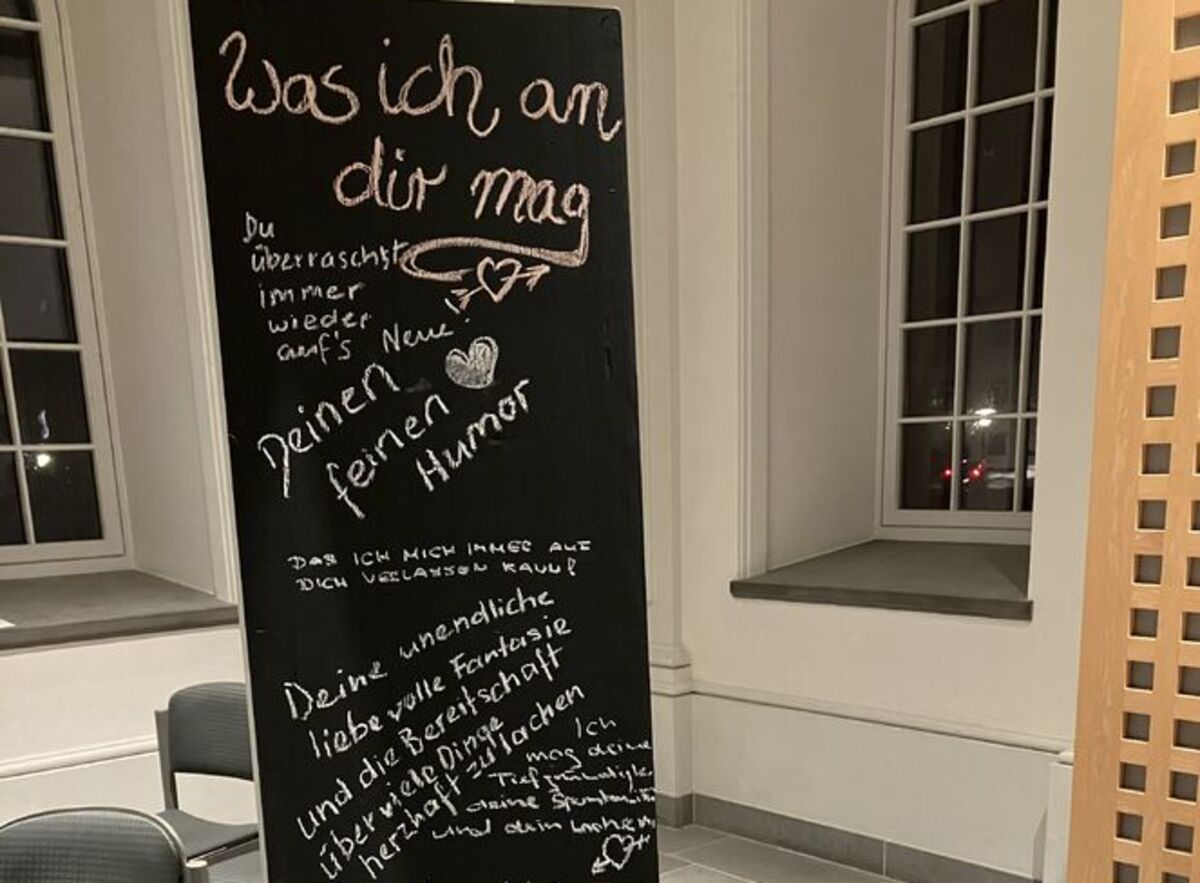 Was ich an
dir mag
Du
überraschst
immer
wieder
auf's Neue!
Deinen
feinen
Humor
DAS ICH MICH IMMER AUF
DICH VERLASSEN KANN!
Deine unendliche
liebevolle Fantasie
und die Bereitschaft
über viele Dinge
herzhaft zu lachen
Ich
mag deine
deine
und dein